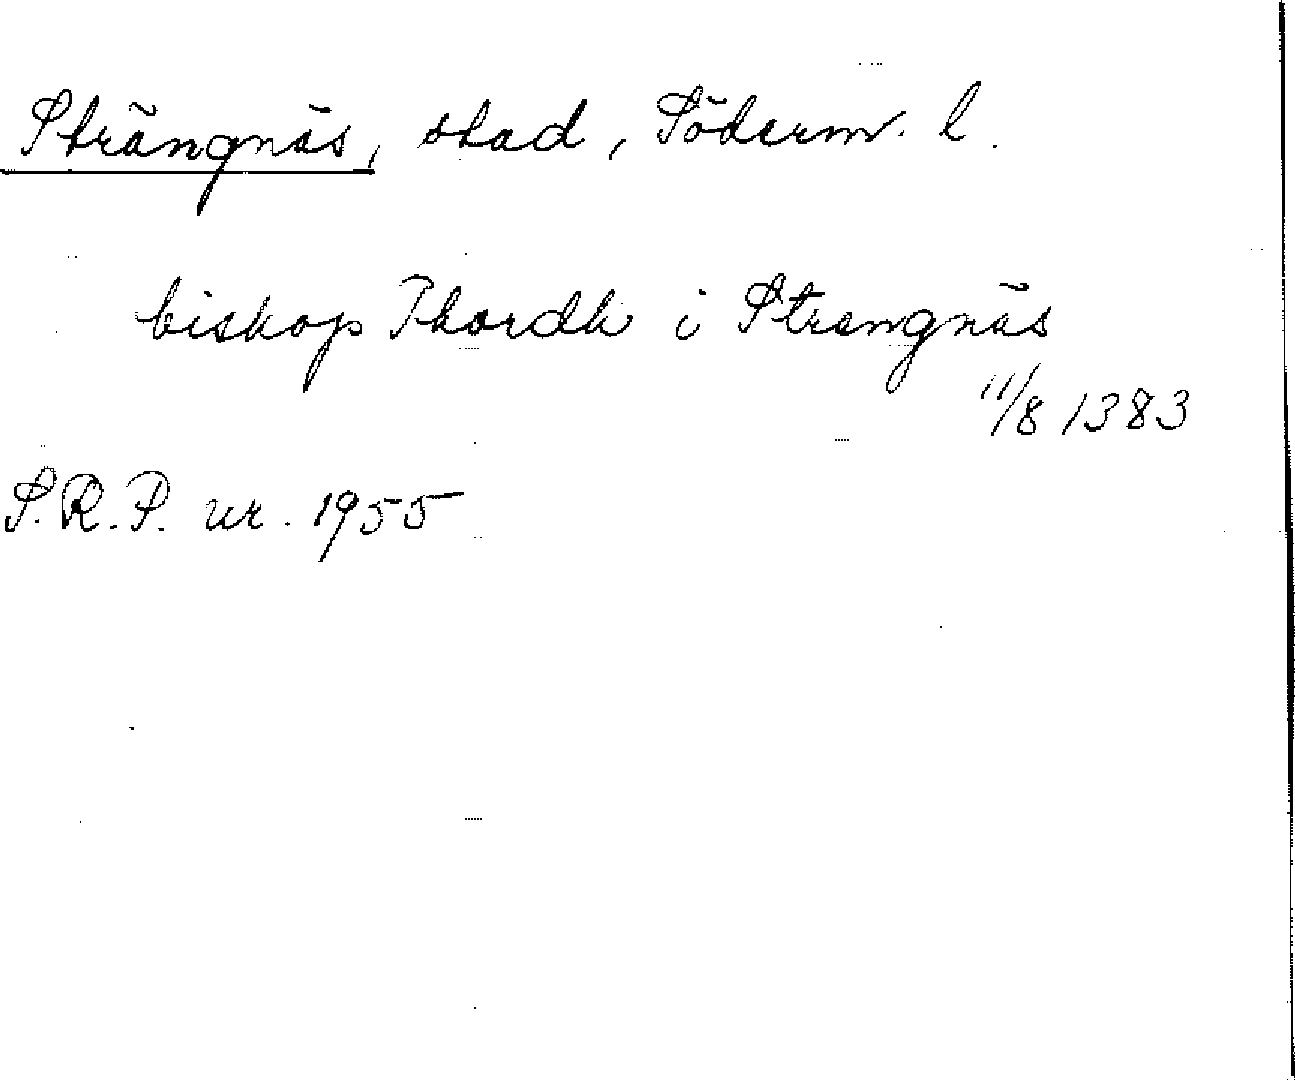 Strängnäs, stad, Söderm. l.
biskop Thordh i Strengnäs
11/8 1383
S.R.P. nr. 1955